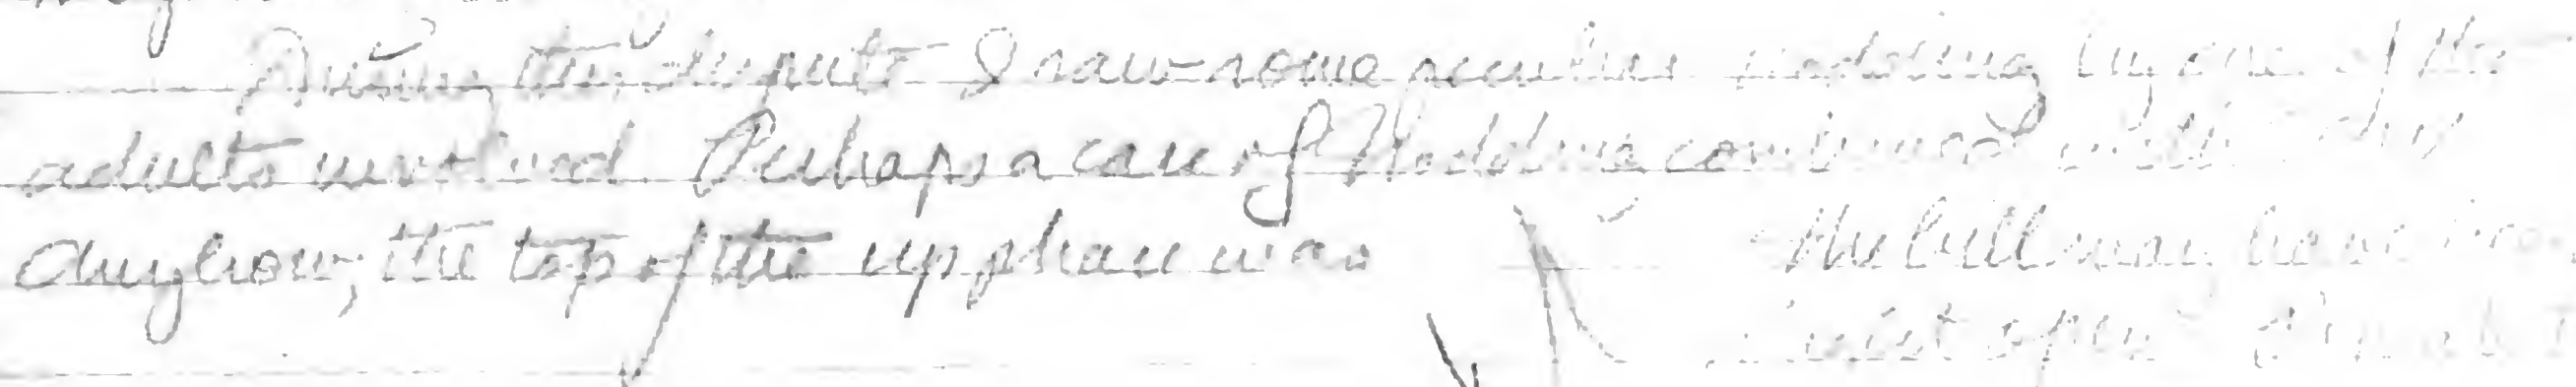 During this dispute I saw some peculiar nodding by one of the
adults involved. Perhaps a case of Nodding combined with
Anyhow, the top of the up phase was
The bill may have been
open